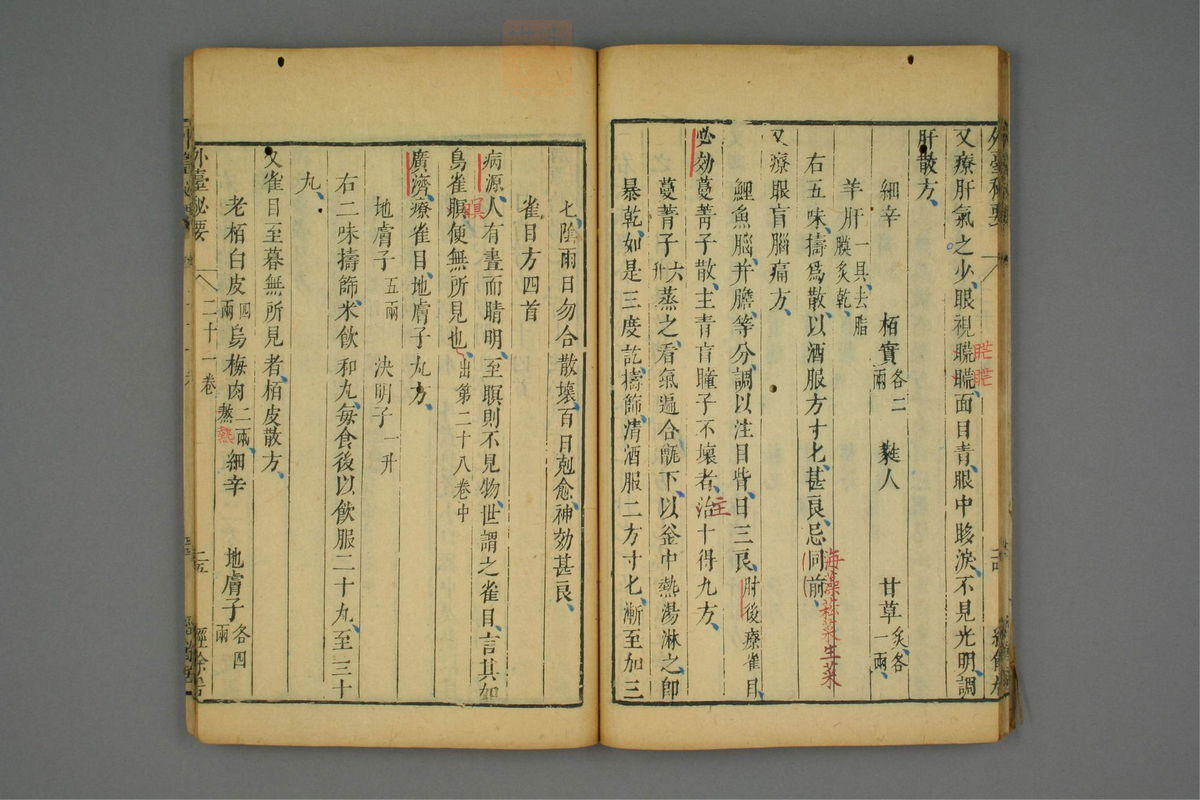 外臺秘要
又療肝氣之少眼視𥉂𥉂面目青眼中眵淚不見光明調
肝散方
細辛 栢實各二兩 蕤人 甘草炙各一兩
羊肝一具去脂膜炙乾
右五味擣爲散以酒服方寸匕甚良忌同前
海藻菘菜生菜
又療眼盲腦痛方
鯉魚腦并膽等分調以注目眥日三良肘後療雀目
必効蔓菁子散主青盲瞳子不壞者治十得九方
主
蔓菁子六升蒸之看氣遍合甑下以釜中熱湯淋之即
暴乾如是三度訖擣篩清酒服二方寸匕漸至加三
匕陰雨日勿合散壞百日剋愈神効甚良
雀目方四首
病源人有晝而睛明至瞑則不見物世謂之雀目言其如
鳥雀瞑便無所見也出第二十八卷中
廣濟療雀目地膚子丸方
地膚子五兩 決明子一升
右二味擣篩米飲和丸每食後以飲服二十丸至三十
丸
又雀目至暮無所見者栢皮散方
老栢白皮四兩 烏梅肉二兩熬 細辛 地膚子各四兩
熱
外臺秘要 二十一卷 二十五 經餘居